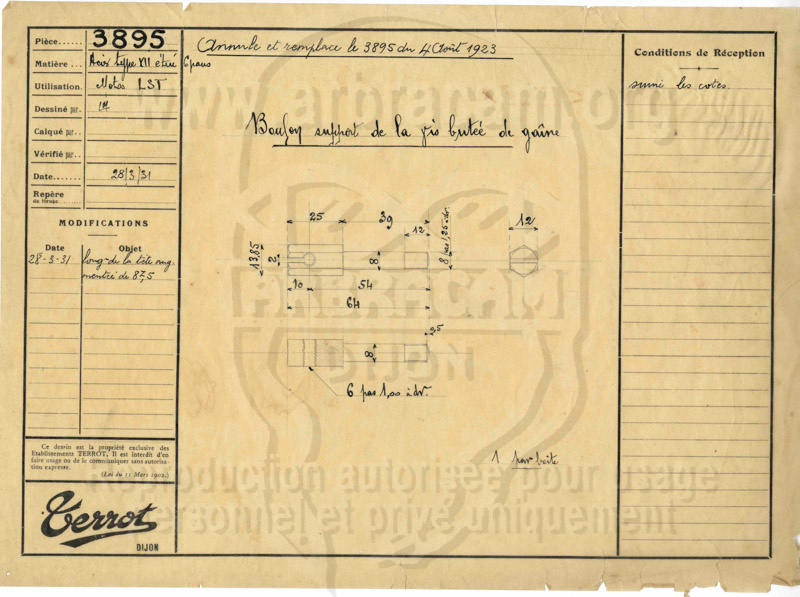 Pièce...... 3895
Matière ... Acier type XII étiré 6 pans
Utilisation. Motos LST
Dessiné par.
Calqué par..
Vérifié par..
Date....... 28/3/31
Repère
MODIFICATIONS
Date Objet
28-3-31 long^r de la tête aug-
mentée de 87,5
Ce dessin est la propriété exclusive des
Etablissements TERROT. Il est interdit d'en
faire usage ou de le communiquer sans autorisa-
tion expresse.
(Loi du 11 Mars 1902.)
Terrot
DIJON
Annule et remplace le 3895 du 4 Août 1923
Boulon support de la vis butée de gaîne
25
39
12
12
13,85
2
8
8 pas 1,25 à dr.
10
54
64
2,5
8
6 pas 1,00 à dr.
1 par boîte
Conditions de Réception
suivi les cotes.
www.arbracam.org
ARBRACAM
DIJON
Reproduction autorisée pour usage
personnel et privé uniquement